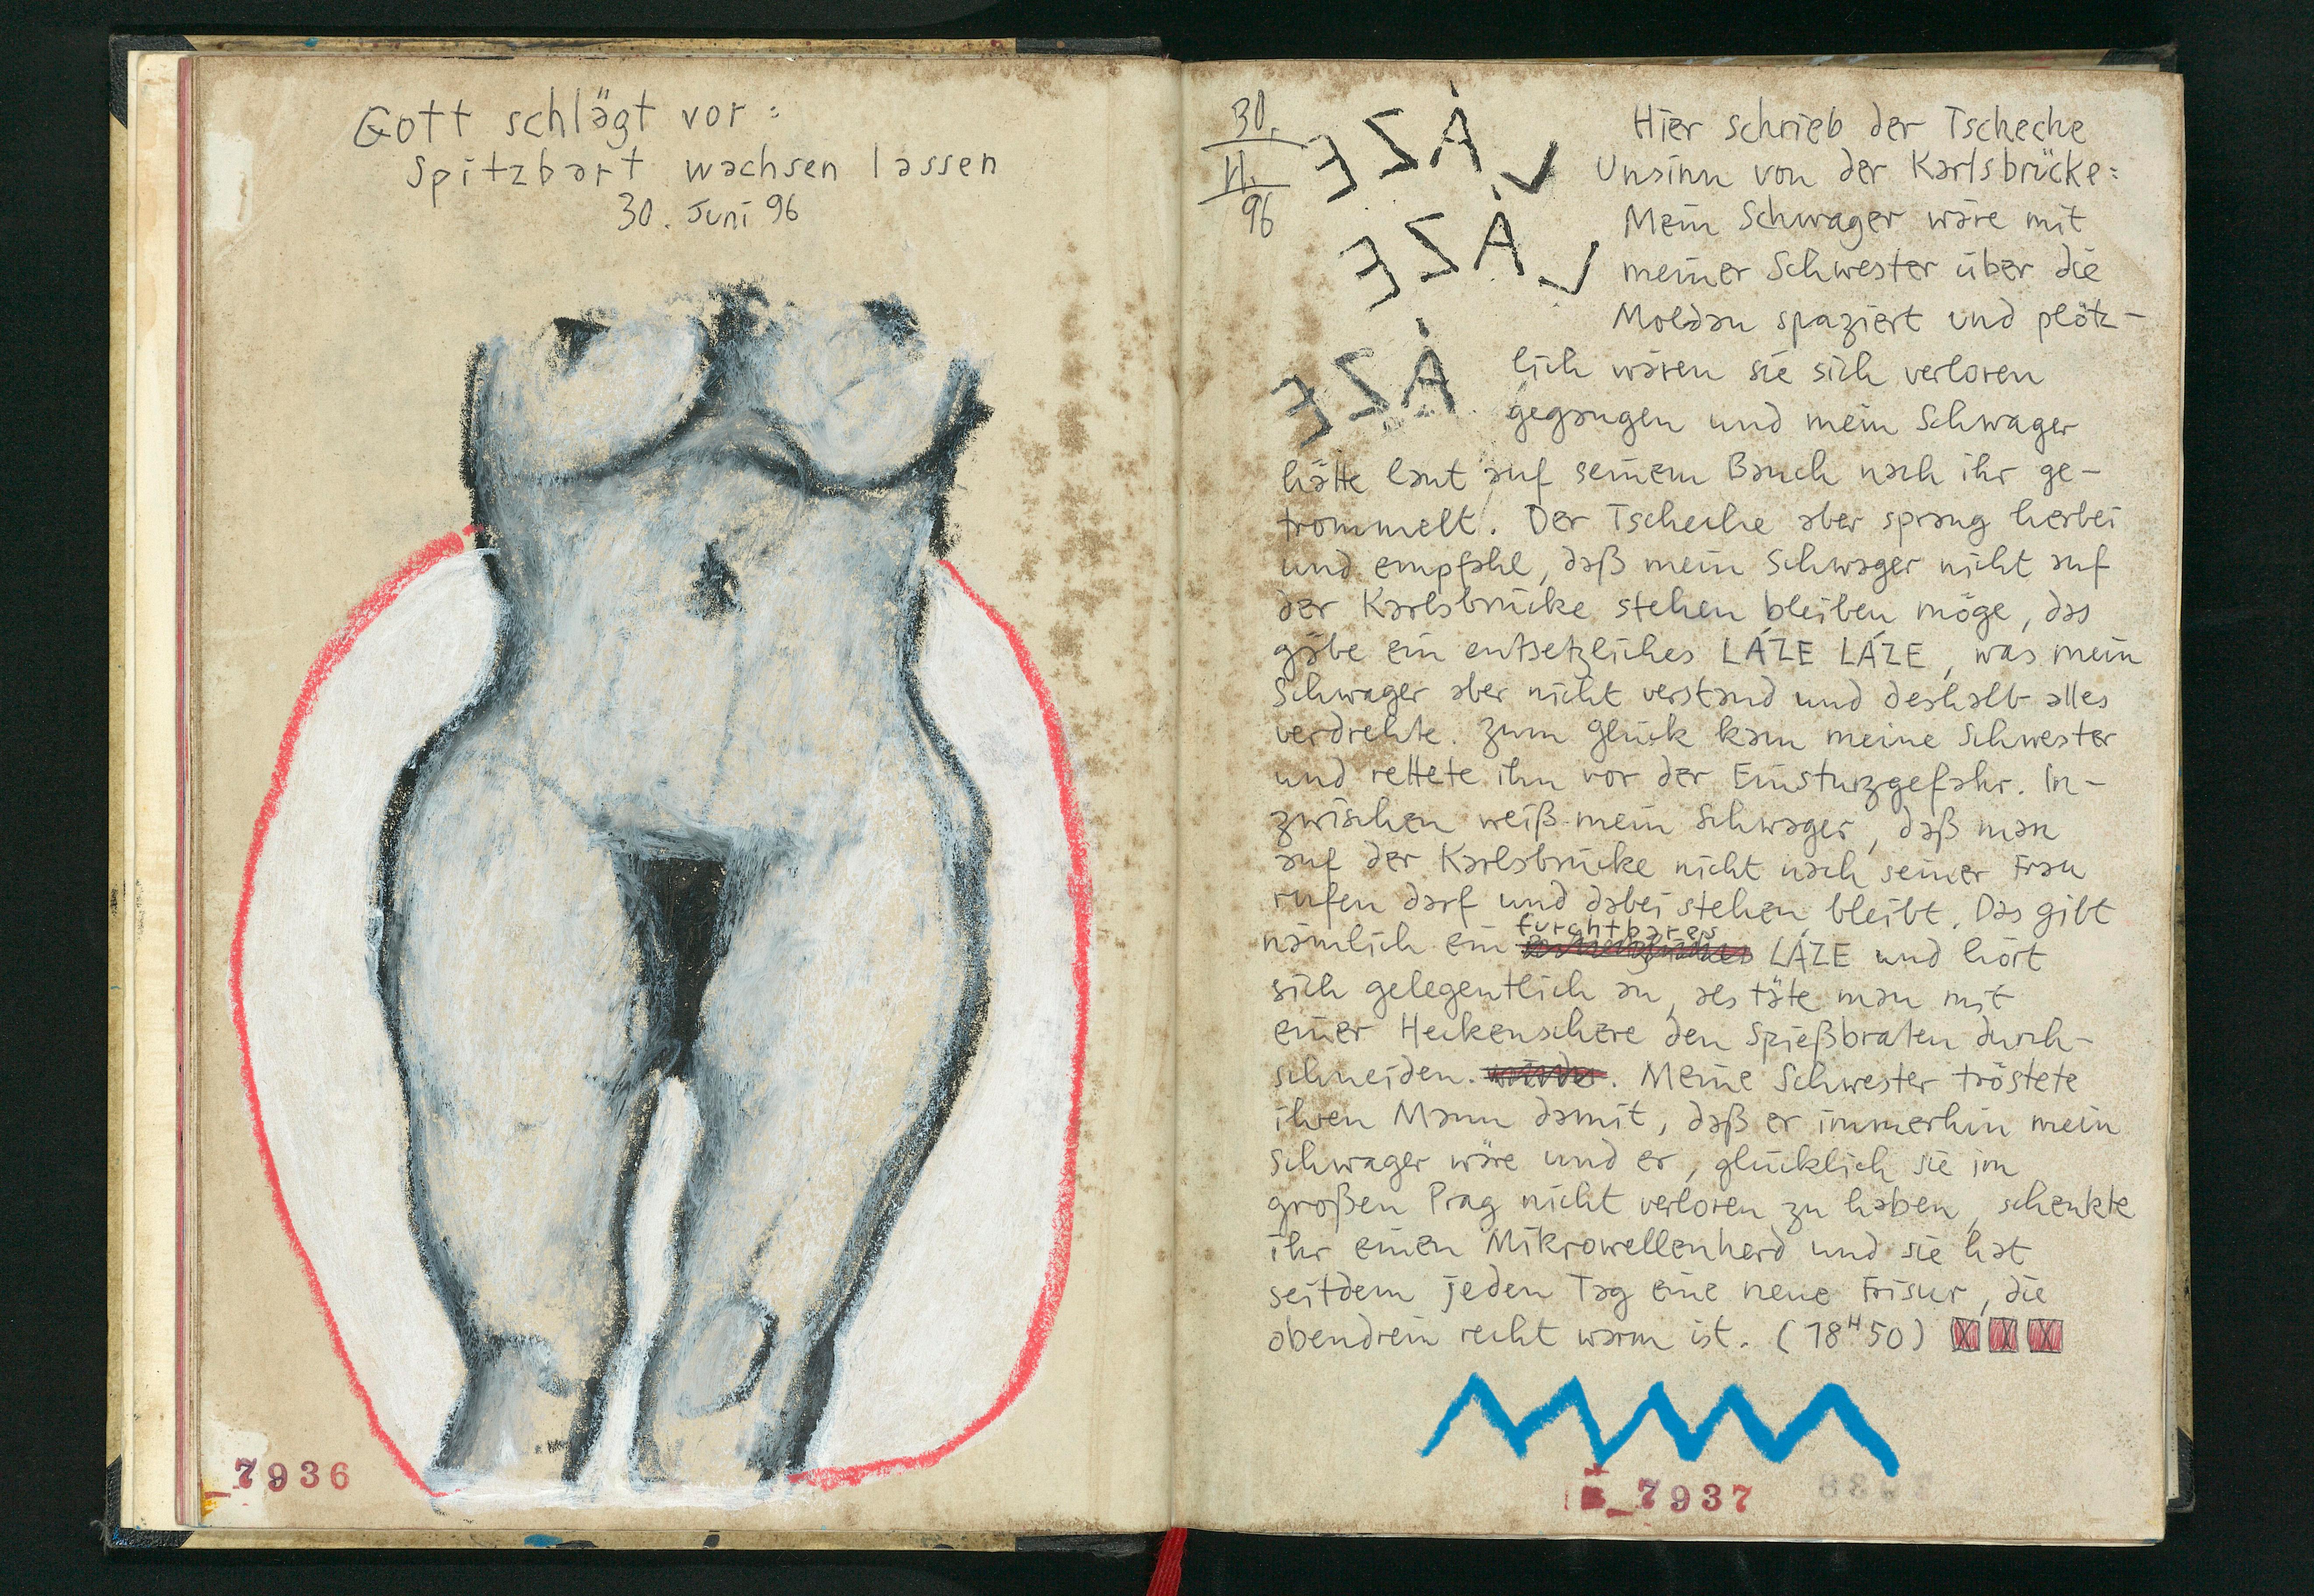 Gott schlägt vor:
Spitzbart wachsen lassen
30. Juni 96
7936
30.
VI.
96
LÁZE
LÁZE
ÁZE
Hier schrieb der Tscheche
Unsinn von der Karlsbrücke:
Mein Schwager wäre mit
meiner Schwester über die
Moldau spaziert und plötz-
lich wären sie sich verloren
gegangen und mein Schwager
hätte laut auf seinem Bauch nach ihr ge-
trommelt. Der Tscheche aber sprang herbei
und empfahl, daß mein Schwager nicht auf
der Karlsbrücke stehen bleiben möge, das
gäbe ein entsetzliches LÁZE LÁZE, was mein
Schwager aber nicht verstand und deshalb alles
verdrehte. Zum Glück kam meine Schwester
und rettete ihn vor der Einsturzgefahr. In-
zwischen weiß mein Schwager, daß man
auf der Karlsbrücke nicht nach seiner Frau
rufen darf und dabei stehen bleibt. Das gibt
nämlich ein furchtbares LÁZE und hört
sich gelegentlich an, als täte man mit
einer Heckenschere den Spießbraten durch-
schneiden. Meine Schwester tröstete
ihren Mann damit, daß er immerhin mein
Schwager wäre und er, glücklich sie im
großen Prag nicht verloren zu haben, schenkte
ihr einen Mikrowellenherd und sie hat
seitdem jeden Tag eine neue Frisur, die
obendrein recht warm ist. (18H50) X X X
7937